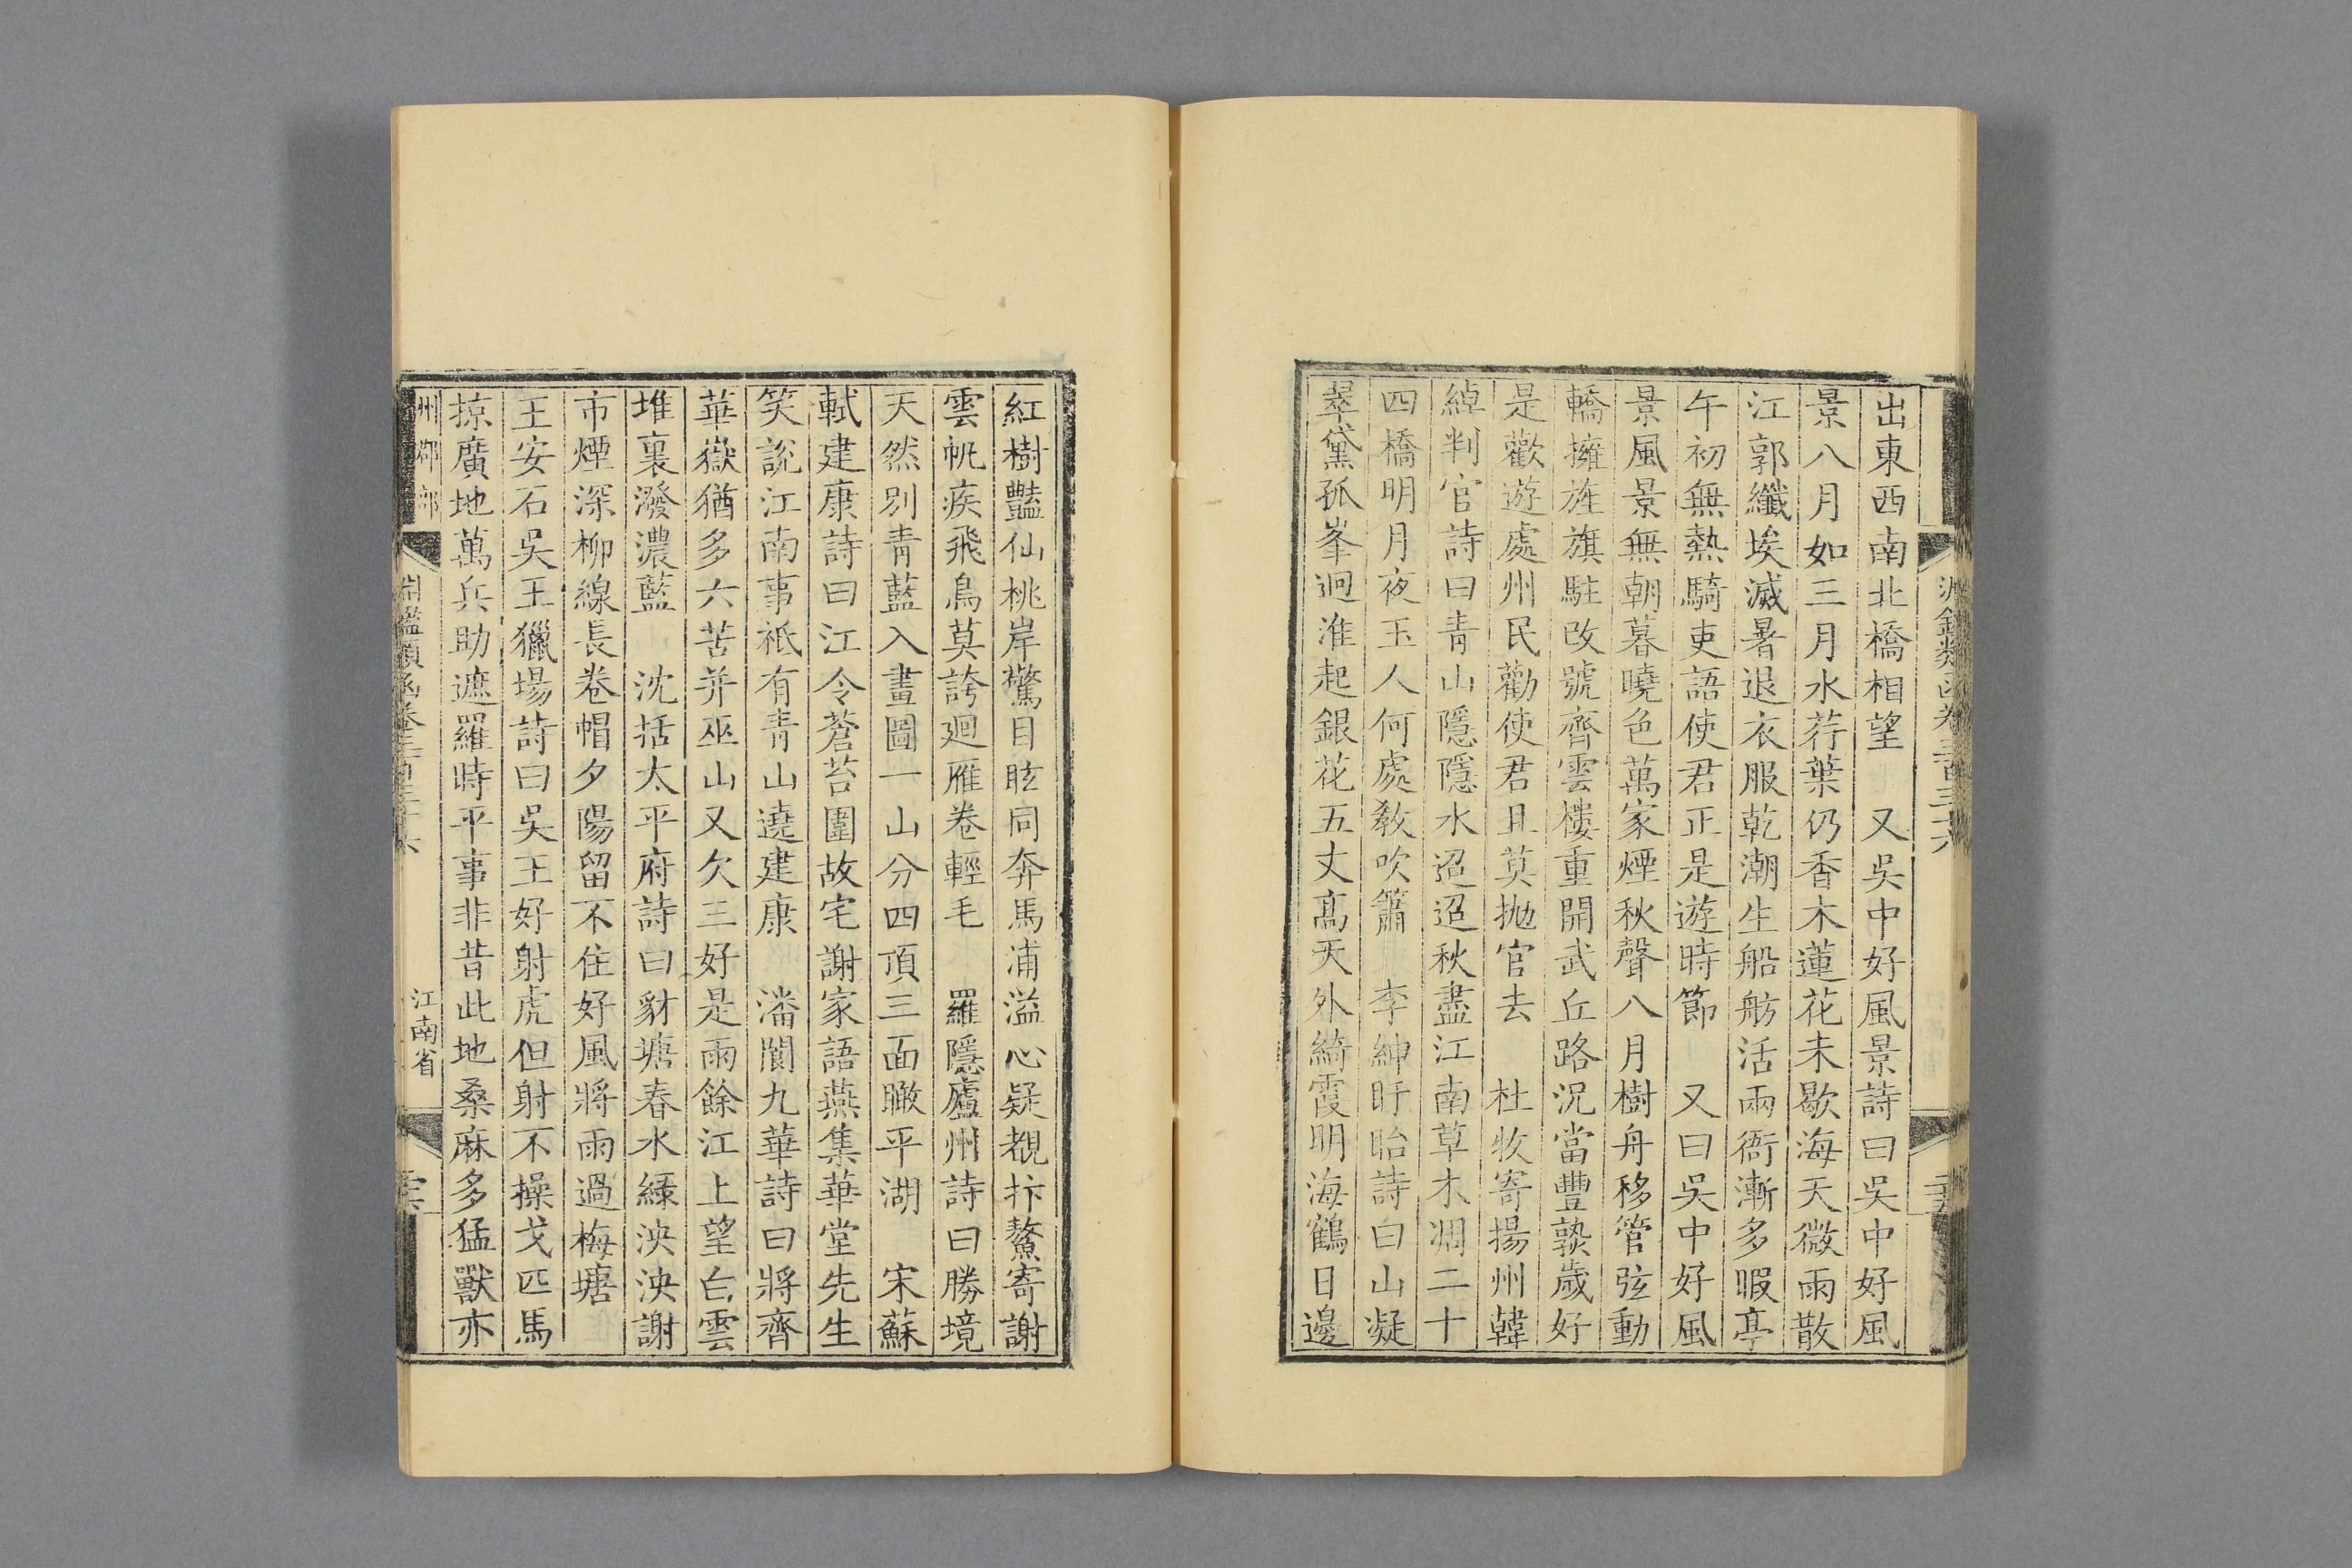 出東西南北橋相望　又吳中好風景詩曰吳中好風
景八月如三月水荇葉仍香木蓮花未歇海天微雨散
江郭纖埃滅暑退衣服乾潮生船舫活兩衙漸多暇亭
午初無熱騎吏語使君正是遊時節　又曰吳中好風
景風景無朝暮曉色萬家煙秋聲八月樹舟移管弦動
轎擁旌旗駐改號齊雲樓重開武丘路況當豐孰歲好
是歡遊處州民勸使君且莫拋官去　杜牧寄揚州韓
綽判官詩曰青山隱隱水迢迢秋盡江南草木凋二十
四橋明月夜玉人何處教吹簫　李紳盱眙詩曰山凝
翠黛孤峯迥淮起銀花五丈高天外綺霞明海鶴日邊
紅樹豔仙桃岸驚目眩同奔馬浦溢心疑覩抃鰲寄謝
雲帆疾飛鳥莫誇迴雁卷輕毛　羅隱廬州詩曰勝境
天然別青藍入畫圖一山分四頂三面瞰平湖　宋蘇
軾建康詩曰江令蒼苔圍故宅謝家語燕集華堂先生
笑說江南事祗有青山遶建康　潘閬九華詩曰將齊
華嶽猶多六苦并巫山又欠三好是雨餘江上望白雲
堆裏潑濃藍　沈括太平府詩曰豺塘春水綠泱泱謝
市煙深柳線長卷帽夕陽留不住好風將雨過梅塘
王安石吳王獵場詩曰吳王好射虎但射不操戈匹馬
掠廣地萬兵助遮羅時平事非昔此地桑麻多猛獸亦
州郡部
淵鑑類函卷三百三十六
江南省